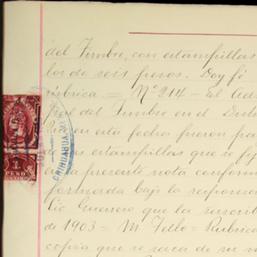 del Timbre, con estampillas
lor de seis pesos. Doy fé
rúbrica = Nº 214 - El Ad
del Timbre en el
en esta fecha fueron pa
estampillas que se
presente nota conforme
formada bajo la responsa
Guerrero que la suscrib
de 1903 = M. Tello = Rúbrica
copia que se saca de su
CHIHUAHUA
1
PESO